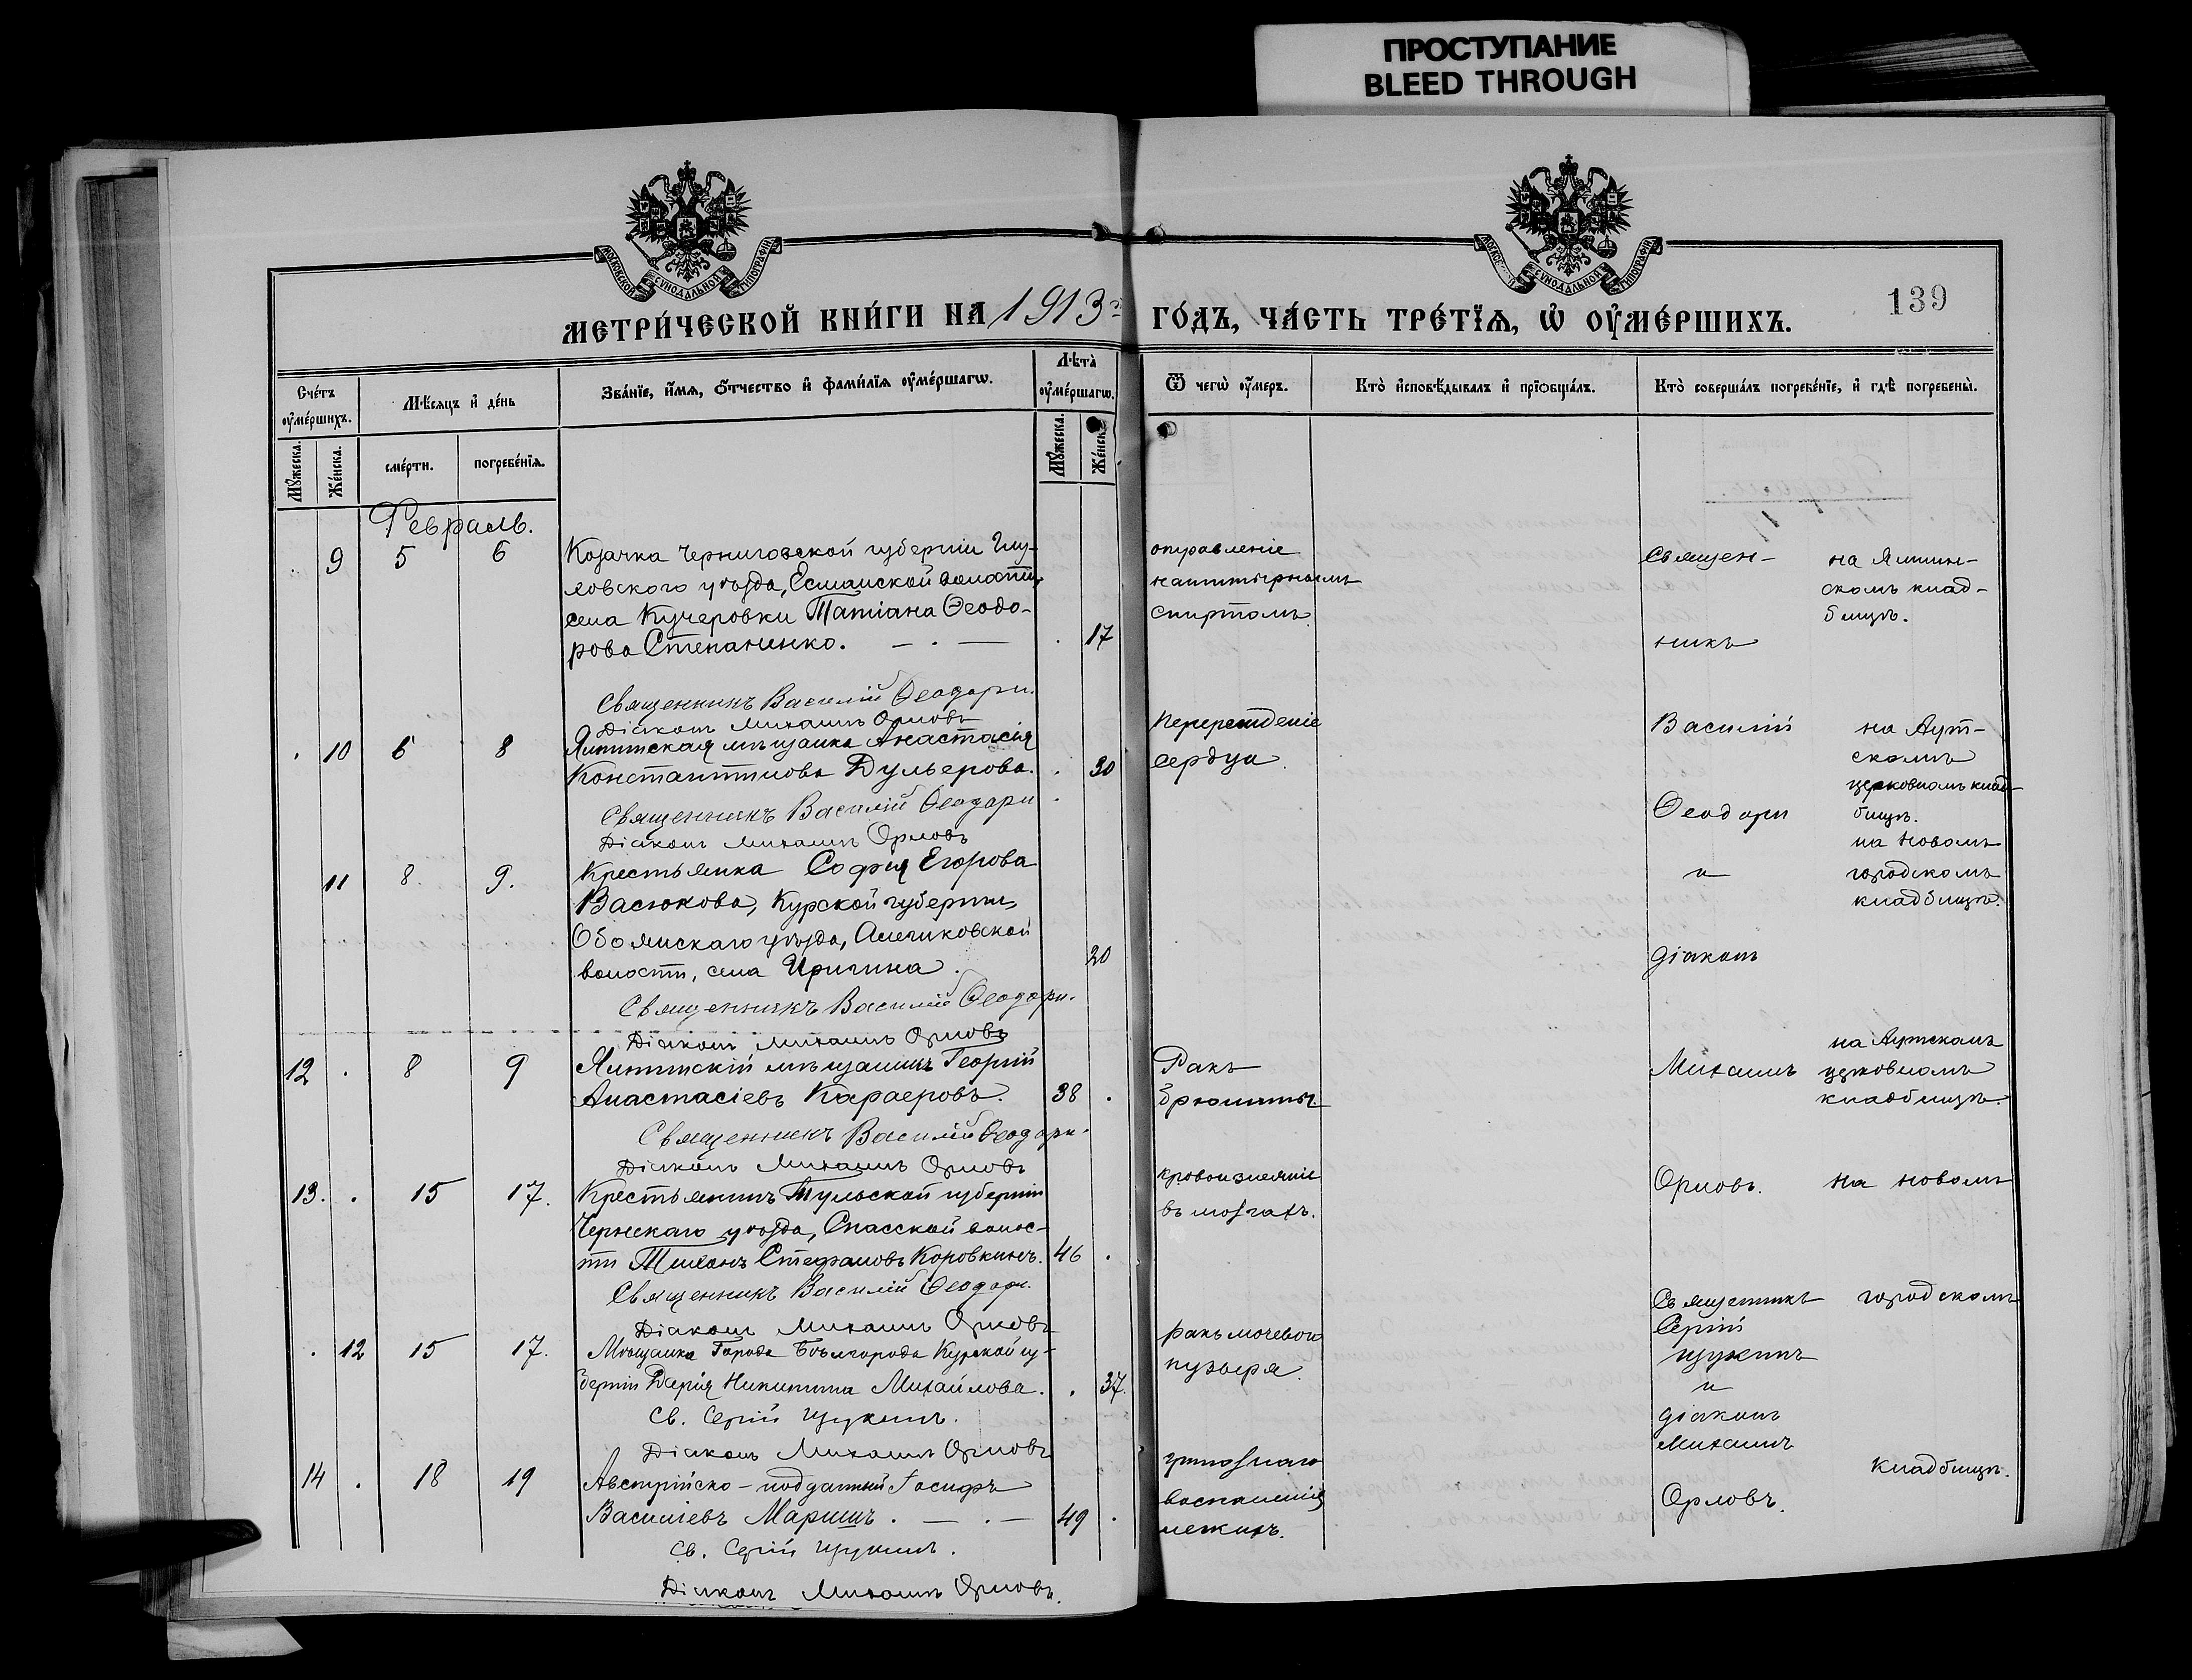 ПРОСТУПАНИЕ
BLEED THROUGH
МОСКОВСКОЙ СУНОДАЛЬНОЙ ТИПОГРАФІИ
МЕТРИ́ЧЕСКОЙ КНИ́ГИ НА 1913
ГО́ДЪ, ЧА́СТЬ ТРЕ́ТІѦ, Ѡ҆ ОУ҆МЕ́РШИХЪ.
139
Сче́тъ оу҆ме́ршихъ.
Мꙋ́жеска.
Же́нска.
Мѣ́сяцъ и҆ де́нь
сме́рти.
погребе́нїѧ.
Зва́нїе, и҆́мѧ, ѻ҆́тчество и҆ фами́лїѧ оу҆ме́ршагѡ.
Лѣ́та оу҆ме́ршагѡ.
Мꙋ́жеска.
Же́нска.
Ѿ чегѡ̀ оу҆́меръ.
Кто̀ и҆сповѣ́дывалъ и҆ прїѻбща́лъ.
Кто̀ соверша́лъ погребе́нїе, и҆ гдѣ̀ погребены̀.
Февраль.
9 5 6 Козачка Черниговской губерніи Глу-
ховского уѣзда, Есманской волости,
села Кучеровки Татіана Ѳеодо-
рова Степаненко. — . — . 17
отравленіе
нашатырнымъ
спиртомъ.
Священ-
никъ
на Ялтин-
скомъ клад-
бищѣ.
Священникъ Василій Ѳеодори.
Діаконъ Михаилъ Орловъ
. 10 6 8 Ялтинская мѣщанка Анастасія
Константинова Дульерова. . 30
Перерожденіе
сердца.
Василій
на Аут-
скомъ
церковномъ клад-
бищѣ.
Священникъ Василій Ѳеодори
Діаконъ Михаилъ Орловъ
Ѳеодори
11 8. 9. Крестьянка Софія Егорова
Васюкова, Курской губерніи,
Обоянскаго уѣзда,
волости, села 20
и
діаконъ
на Новомъ
городскомъ
кладбищѣ.
Священникъ Василій Ѳеодори.
Діаконъ Михаилъ Орловъ
12 . 8 9 Ялтинскій мѣщанинъ Георгій
Анастасіевъ Караеровъ. 38 .
Ракъ
брюшины.
Михаилъ
на Аутскомъ
церковномъ
кладбищѣ.
Священникъ Василій Ѳеодори.
Діаконъ Михаилъ Орловъ
13. . 15 17. Крестьянинъ Тульской губерніи
Чернскаго уѣзда, Спасской волос-
ти Тихонъ Стефановъ Коровкинъ. 46 .
кровоизліяніе
въ мозгахъ.
Орловъ.
на новомъ
Священникъ Василій Ѳеодори.
Діаконъ Михаилъ Орловъ
Священникъ
Сергій
Щукинъ
и
діаконъ
Михаилъ
Орловъ.
городскомъ
кладбищѣ.
. 12 15 17. Мѣщанка Города Бѣлгорода Курской гу-
берніи Дарія Никитина Михайлова. . 37.
ракъ мочевого
пузыря.
Св. Сергій Щукинъ.
Діаконъ Михаилъ Орловъ
14 . 18 19 Австрійско-подданный Іосифъ
Василіевъ Маришъ. — . — 49 .
гриппознаго
воспаленія
легкихъ.
Св. Сергій Щукинъ.
Діаконъ Михаилъ Орловъ.